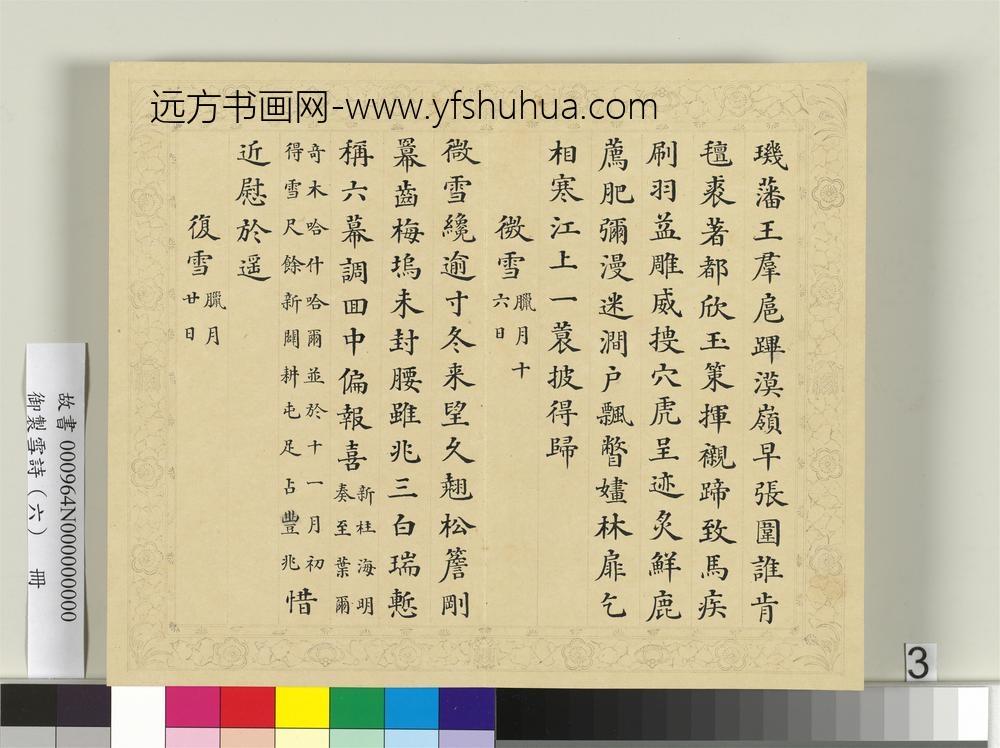 远方书画网-www.yfshuhua.com
璣藩王羣扈蹕漠嶺早張圍誰肯
氊裘著都欣玉策揮襯蹄致馬疾
刷羽益雕威捜穴虎呈迹炙鮮鹿
薦肥彌漫迷澗户飄瞥嫿林扉乞
相寒江上一蓑披得歸
微雪 臘月十六日
微雪纔逾寸冬来望久翹松簷剛
羃齒梅塢未封腰雖兆三白瑞慙
稱六幕調回中偏報喜 新柱海明奏至葉爾
竒木哈什哈爾並於十一月初得雪尺餘新闢耕屯足占豐兆 惜
近慰於遥
復雪 臘月廿日
故書 000964N000000000
御製雪詩(六) 冊
3